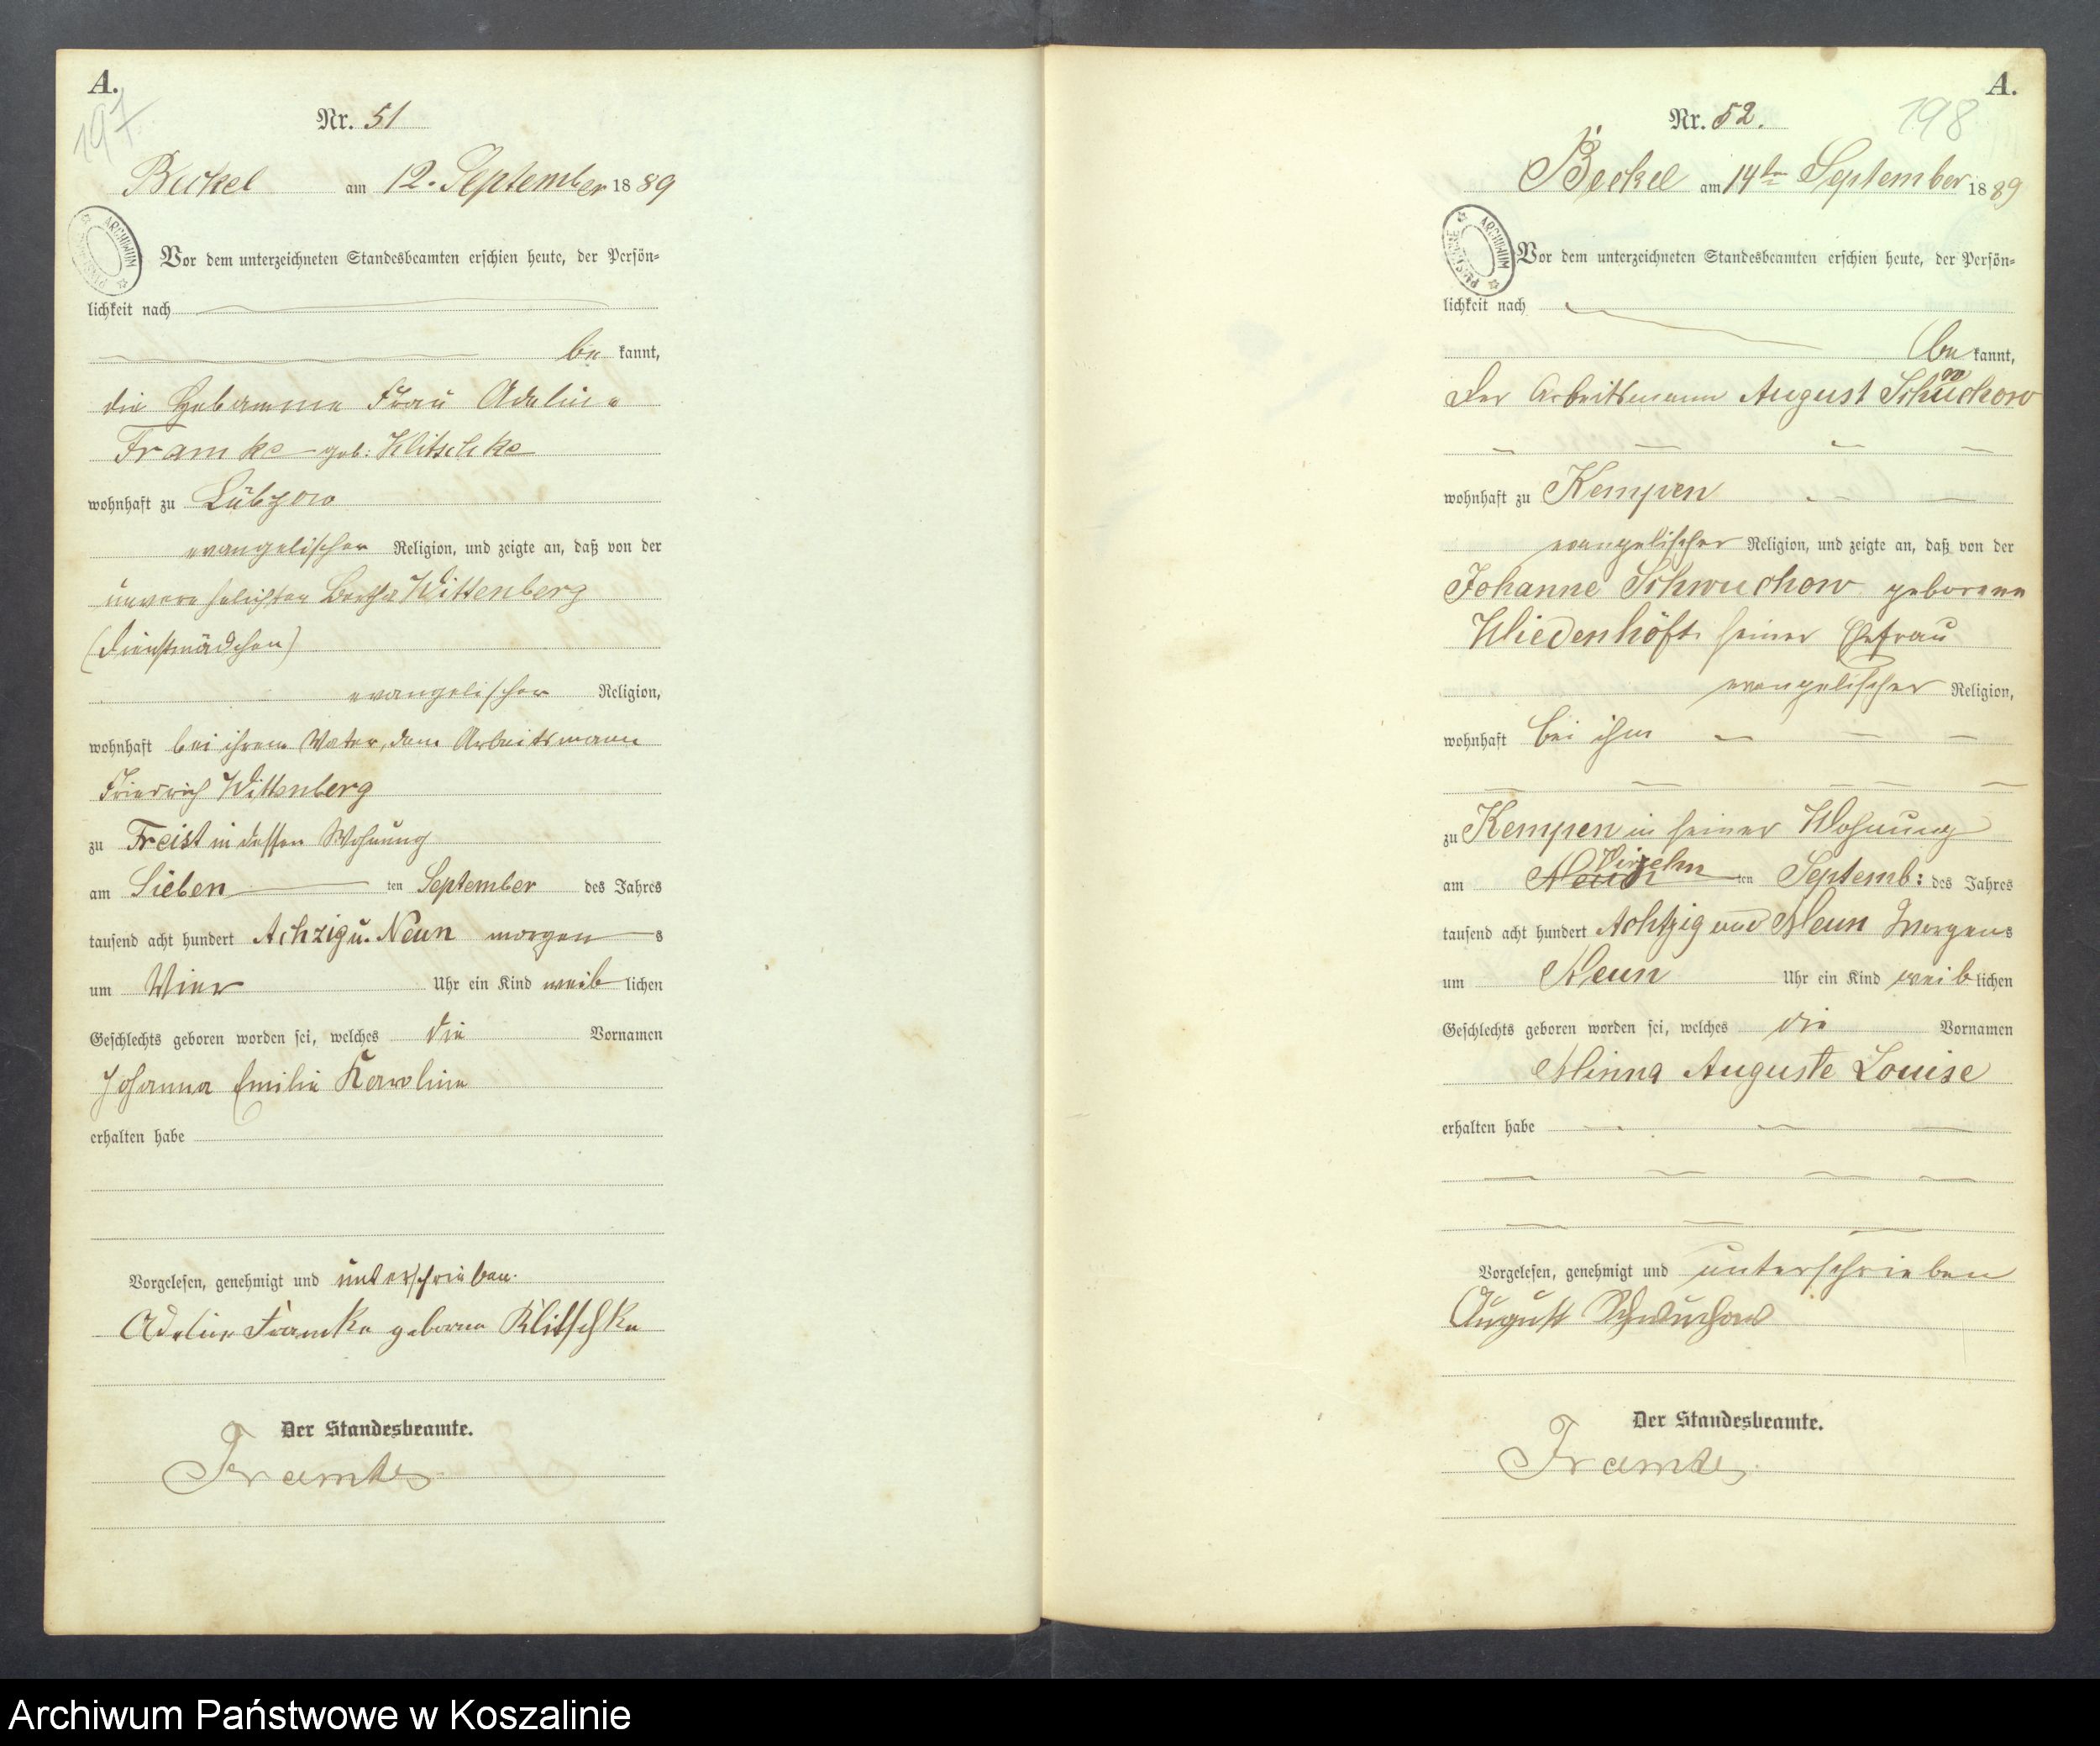 A.
197
Nr. 51
Beckel am 12. September 1889
ARCHIWUM PAŃSTWOWE
Vor dem unterzeichneten Standesbeamten erschien heute, der Persön=
lichkeit nach
be kannt,
die Hebamme Frau Adeline
Framke geb: Klitschke
wohnhaft zu Lübzow
evangelischer Religion, und zeigte an, daß von der
unverehelichten Bertha Wittenberg
(Dienstmädchen)
evangelischer Religion,
wohnhaft bei ihrem Vater, dem Arbeitsmann
Friedrich Wittenberg
zu Freist in dessen Wohnung
am Sieben ten September des Jahres
tausend acht hundert Achzig u. Neun morgen s
um Vier Uhr ein Kind weib lichen
Geschlechts geboren worden sei, welches die Vornamen
Johanna Emilie Karoline
erhalten habe
Vorgelesen, genehmigt und unterschrieben.
Adeline Framke geborne Klitschke
Der Standesbeamte.
Framke
A.
198
Nr. 52.
Beckel am 14ten September 1889
ARCHIWUM PAŃSTWOWE
Vor dem unterzeichneten Standesbeamten erschien heute, der Persön=
lichkeit nach
be kannt,
Der Arbeitsmann August Schwuchow
wohnhaft zu Kempen
evangelischer Religion, und zeigte an, daß von der
Johanne Schwuchow geborene
Wiedenhöft seiner Ehefrau
evangelischer Religion,
wohnhaft bei ihm
zu Kempen in seiner Wohnung
Vierzehn
am Neun ten Septemb: des Jahres
tausend acht hundert Achtzig und Neun Morgens
um Neun Uhr ein Kind weib lichen
Geschlechts geboren worden sei, welches die Vornamen
Minna Auguste Louise
erhalten habe
Vorgelesen, genehmigt und unterschrieben
August Schwuchow
Der Standesbeamte.
Framke
Archiwum Państwowe w Koszalinie